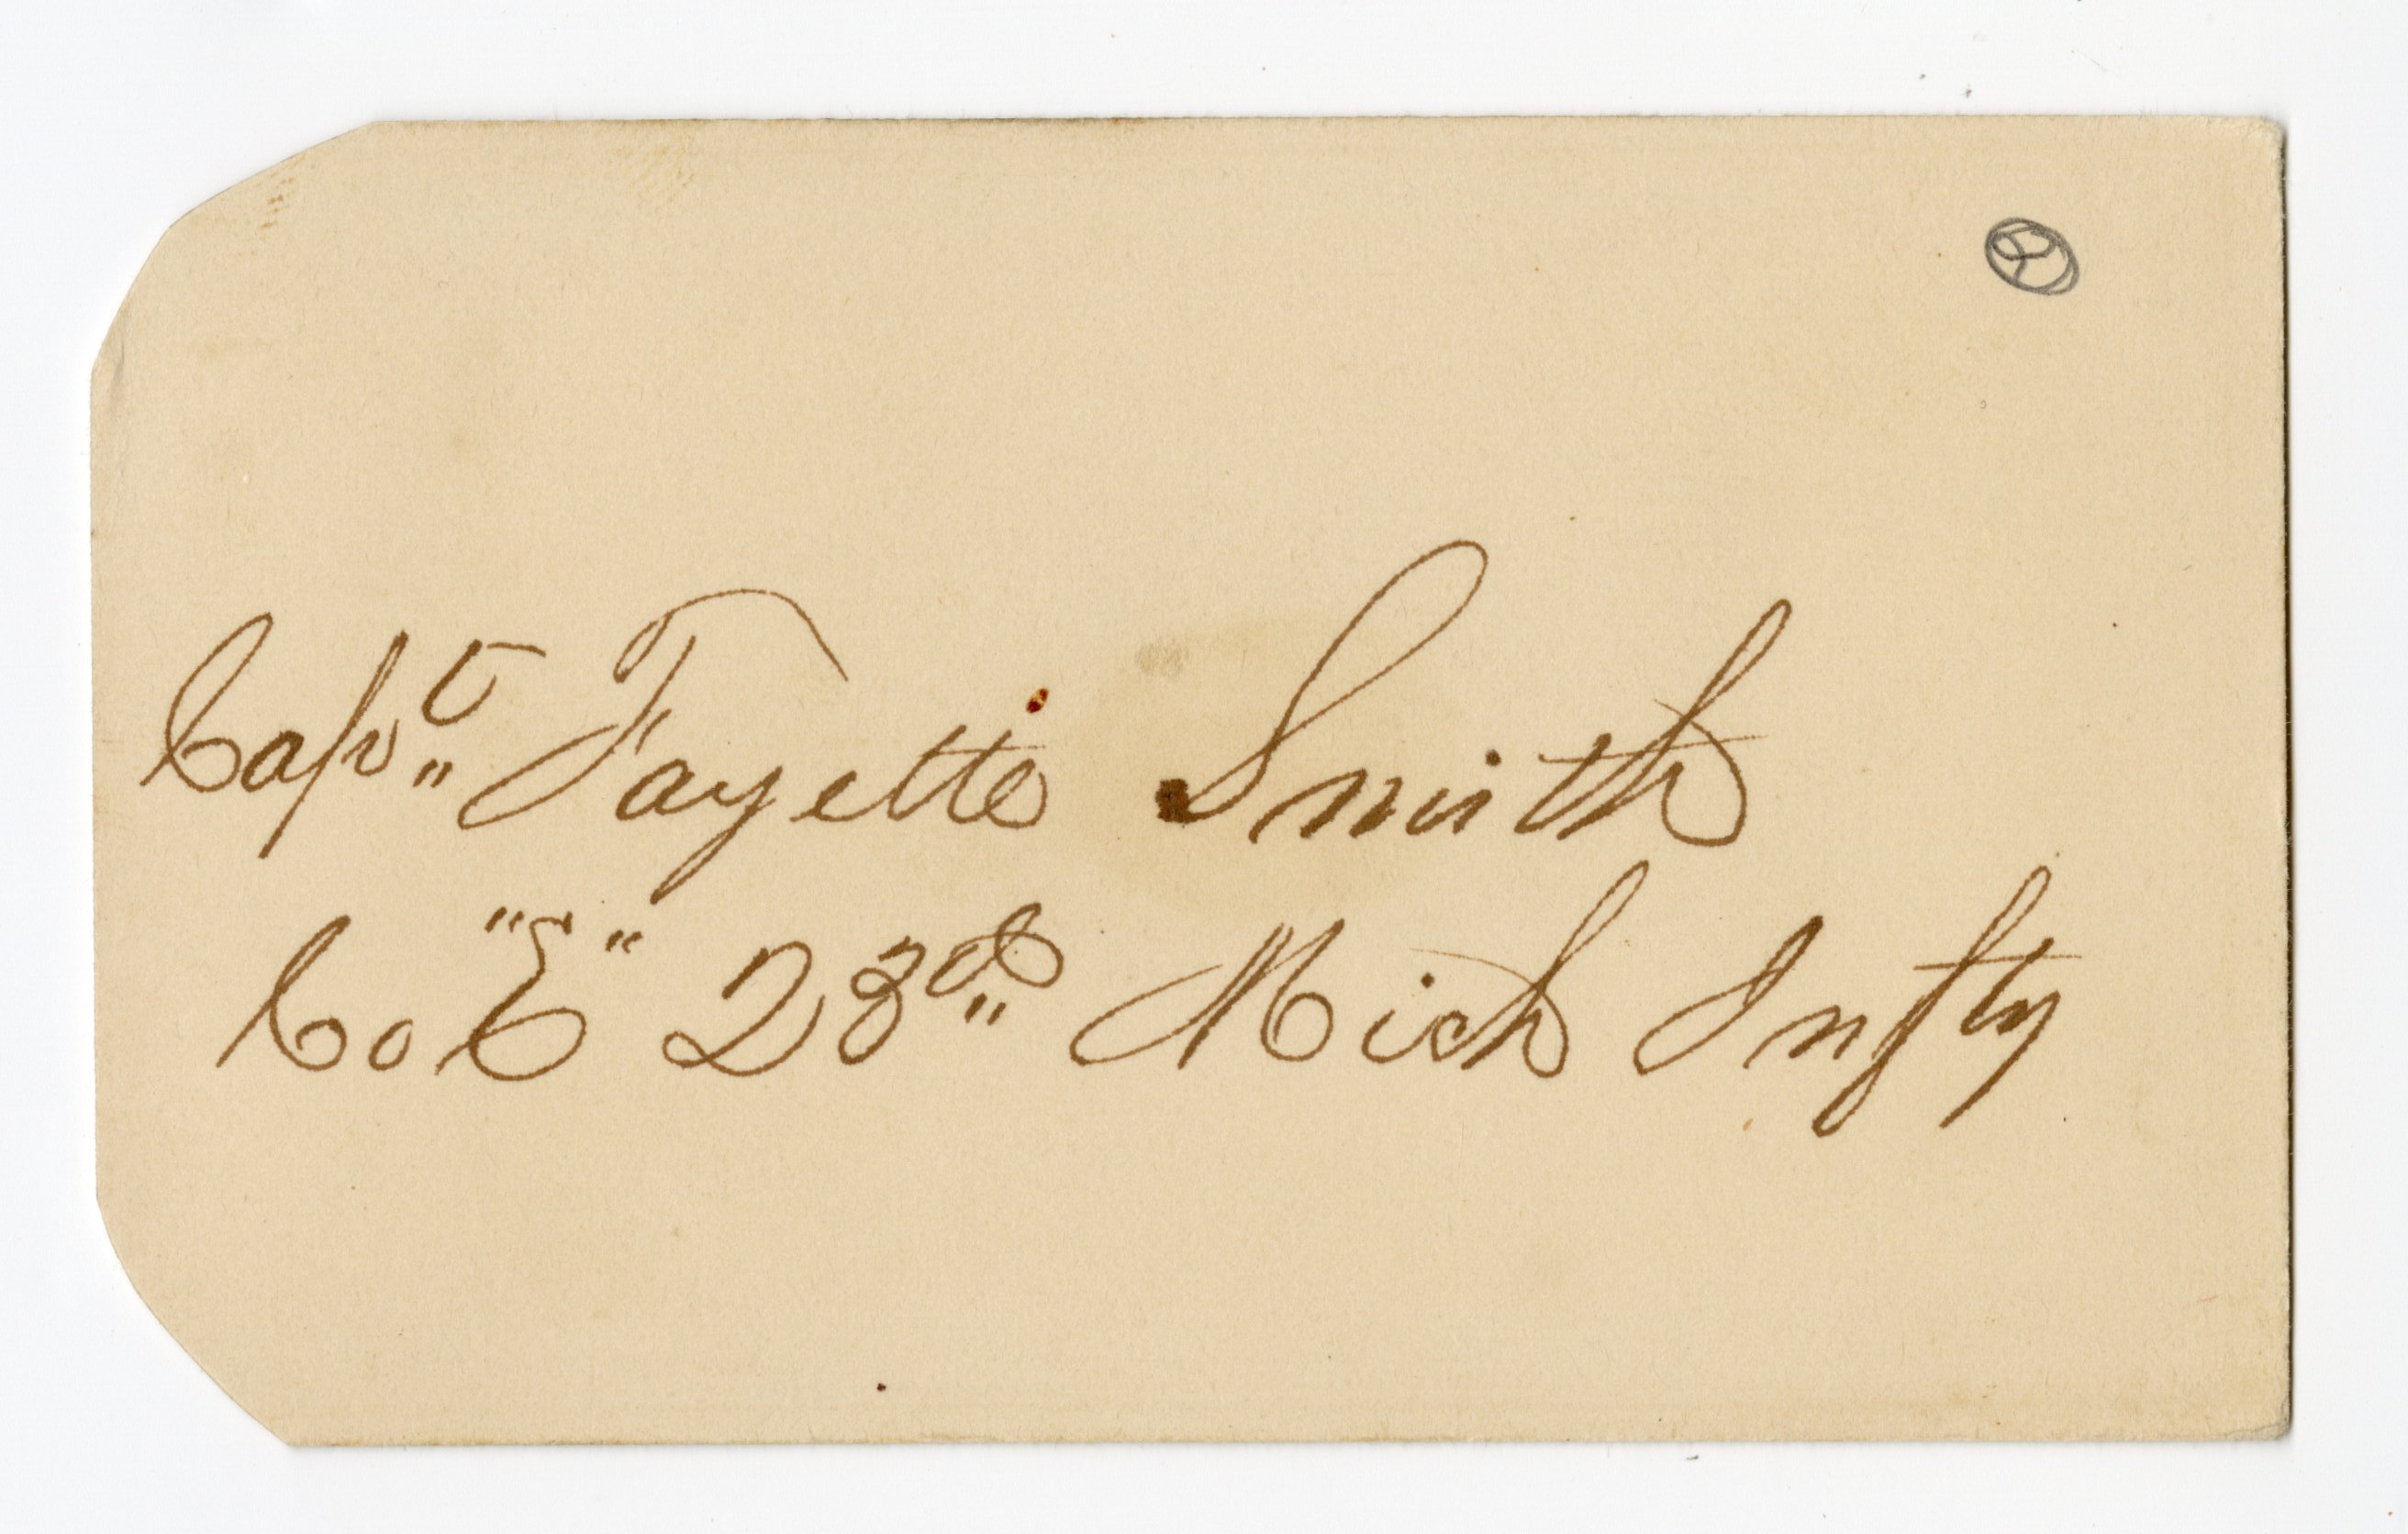 Capt„ Fayette Smith
Co "E" 23d„ Mich Infty